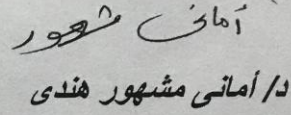 أمانى مشهور
د/ أمانى مشهور هندى